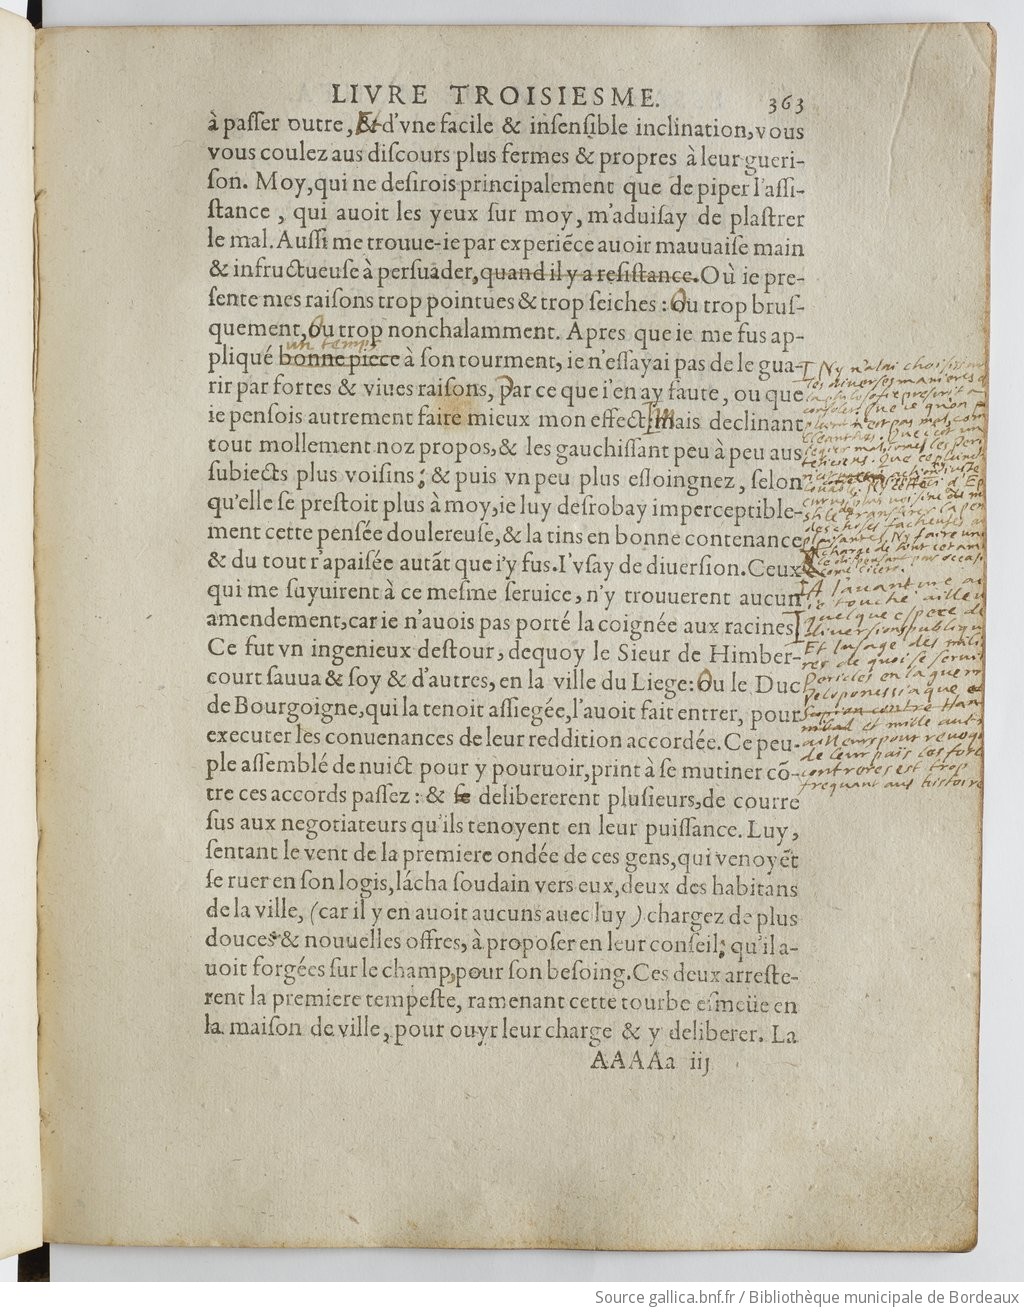 LIVRE TROISIESME. 363
à passer outre, Et d'vne facile & insensible inclination, vous
vous coulez aus discours plus fermes & propres à leur gueri-
son. Moy, qui ne desirois principalement que de piper l'assi-
stance , qui auoit les yeux sur moy, m'aduisay de plastrer
le mal. Aussi me trouue-ie par experiẽce auoir mauuaise main
& infructueuse à persuader, quand il y a resistance. Où ie pre-
sente mes raisons trop pointues & trop seiches : Ou trop brus-
quement, Ou trop nonchalamment. Apres que ie me fus ap-
un temps
pliqué bonne piece à son tourment, ie n'essayai pas de le gua-
rir par fortes & viues raisons, Par ce que i'en ay faute, ou que
ie pensois autrement faire mieux mon effect Mais declinant
tout mollement noz propos, & les gauchissant peu à peu aus
subiects plus voisins; & puis vn peu plus esloingnez, selon
qu'elle se prestoit plus à moy, ie luy desrobay imperceptible-
ment cette pensée doulereuse, & la tins en bonne contenance
& du tout r'apaisée autãt que i'y fus. I'vsay de diuersion. Ceux
qui me suyuirent à ce mesme seruice, n'y trouuerent aucun
amendement, car ie n'auois pas porté la coignée aux racines
Ce fut vn ingenieux destour, dequoy le Sieur de Himber-
court sauua & soy & d'autres, en la ville du Liege: Ou le Duc
de Bourgoigne, qui la tenoit assiegée, l'auoit fait entrer, pour
executer les conuenances de leur reddition accordée. Ce peu-
ple assemblé de nuict pour y pouruoir, print à se mutiner cõ-
tre ces accords passez : & se delibererent plusieurs, de courre
sus aux negotiateurs qu'ils tenoyent en leur puissance. Luy,
sentant le vent de la premiere ondée de ces gens, qui venoyẽt
se ruer en son logis, lácha soudain vers eux, deux des habitans
de la ville, (car il y en auoit aucuns auec luy ) chargez de plus
douces & nouuelles offres, à proposer en leur conseil; qu'il a-
uoit forgées sur le champ, pour son besoing. Ces deux arreste-
rent la premiere tempeste, ramenant cette tourbe esmeüe en
la maison de ville, pour ouyr leur charge & y deliberer. La
AAAAa iij
Ny n'alai
les diverses manieres
que ce qu'on
plaint n'est pas mal
des choses facheuses
plaisantes. Ny faire une
charge de tout cet
ciceron
A l'avanture
ie touche ailleu
quelque espece de
diversions publiqu
Et l'usage des mili
res de quoi se servit
Pericles en la guerr
Peloponessiaque et
et mille autr
ailleurs pour revoqu
de leur païs les forc
contreres est trop
frequant aus histoire